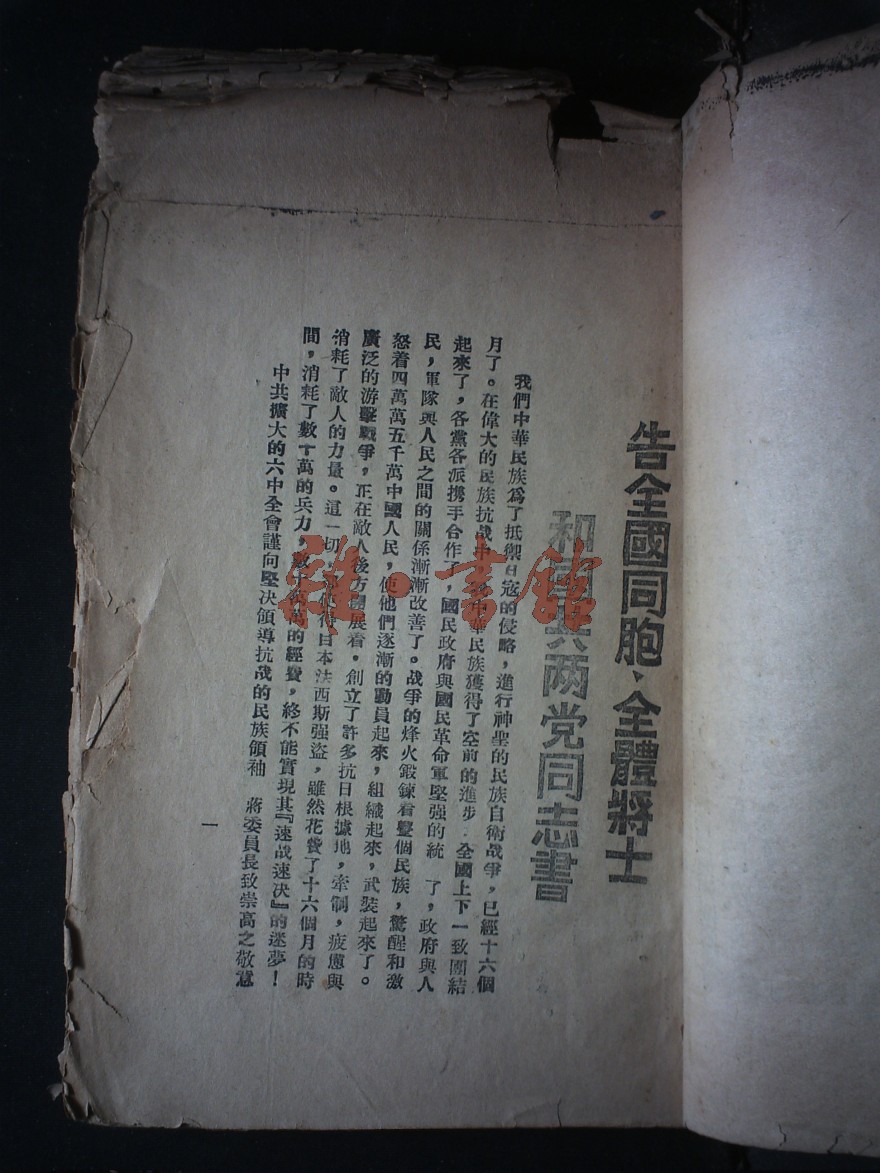 告全國同胞、全體將士
和國共两党同志書
我們中華民族爲了抵禦日寇的侵略，進行神聖的民族自衛战爭，已經十六個
月了。在偉大的民族抗战中，中華民族獲得了空前的進步：全國上下一致團結
起來了，各黨各派携手合作了，國民政府與國民革命軍堅强的統　了，政府與人
民，軍隊與人民之間的關係漸漸改善了。战爭的烽火鍛鍊着整個民族，驚醒和激
怒着四萬萬五千萬中國人民，使他們逐漸的動員起來，組織起來，武裝起來了。
廣泛的游擊戰爭，正在敵人後方開展着。創立了許多抗日根據地，牽制，疲憊與
消耗了敵人的力量。這一切，使得日本法西斯强盗，雖然花費了十六個月的時
間，消耗了數十萬的兵力，數十萬萬的經費，終不能實現其『速战速决』的迷夢！
中共擴大的六中全會謹向堅决領導抗战的民族領袖　蔣委員長致崇高之敬意
一
雜·書館